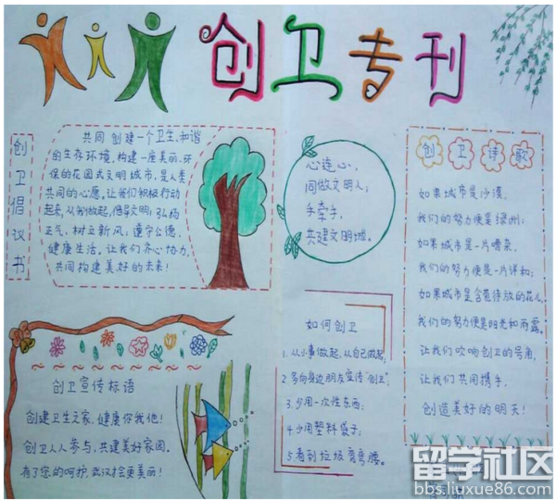 创卫专刊
创卫倡议书
共同创建一个卫生、和谐
的生存环境,构建一座美丽、环
保的花园式文明城市,是人类
共同的心愿,让我们积极行动
起来,从我做起,倡导文明;弘扬
正气,树立新风,遵守公德,
健康生活,让我们齐心协力,
共同构建美好的未来!
心连心,
同做文明人;
手牵手,
共建文明城。
创卫诗歌
如果城市是沙漠,
我们的努力便是绿洲;
如果城市是一片喧嚣,
我们的努力便是一片详和;
如果城市是含苞待放的花儿,
我们的努力便是阳光和雨露。
让我们吹响创卫的号角,
让我们共同携手,
创造美好的明天!
创卫宣传标语
创建卫生之家,健康你我他!
创卫人人参与,共建美好家园。
有了您的呵护,武汉才会更美丽!
如何创卫
1.从小事做起,从自己做起。
2.多向身边朋友宣传“创卫”。
3.少用一次性东西。
4.少用塑料袋子。
5.看到垃圾弯弯腰。
留学社区
bbs.liuxue86.com